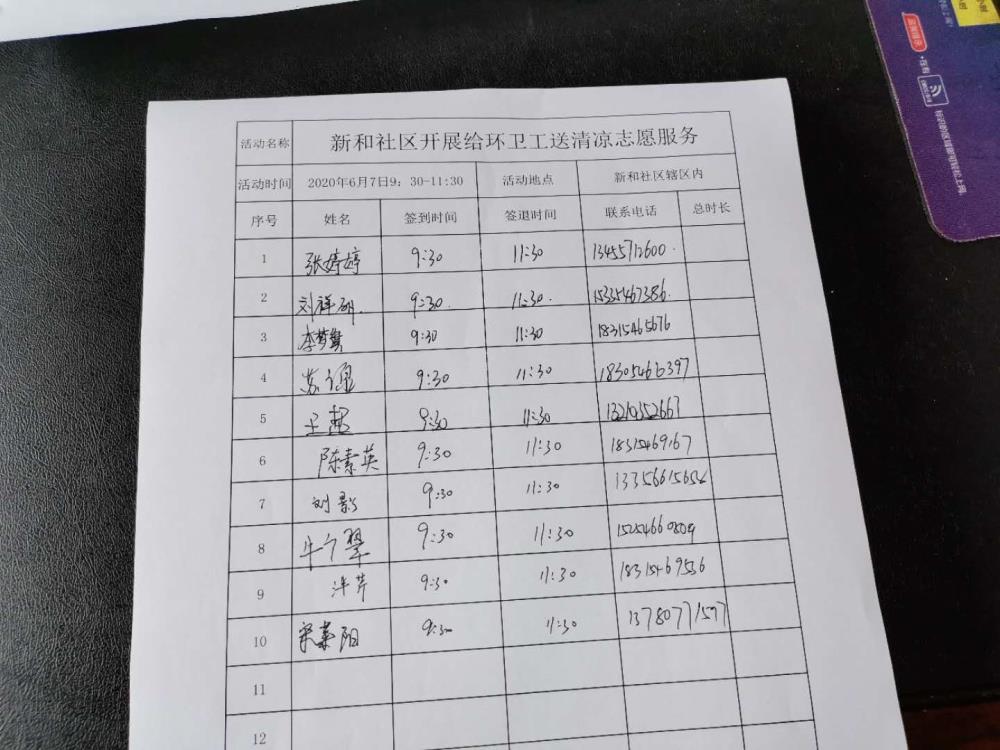 活动名称 新和社区开展给环卫工送清凉志愿服务
活动时间 2020年6月7日9：30-11:30 活动地点 新和社区辖区内
序号 姓名 签到时间 签退时间 联系电话 总时长
1 张婷婷 9:30 11:30 13455712600
2 刘祥 9:30 11:30 15335467386
3 李梦 9:30 11:30 18315465676
4 苏 9:30 11:30 18305466397
5 王 9:30 11:30
6 陈素英 9:30 11:30 18315469167
7 刘影 9:30 11:30 13356615654
8 牛 9:30 11:30
9 9:30 11:30 18315469536
10 9:30 11:30 13780771577
11
12